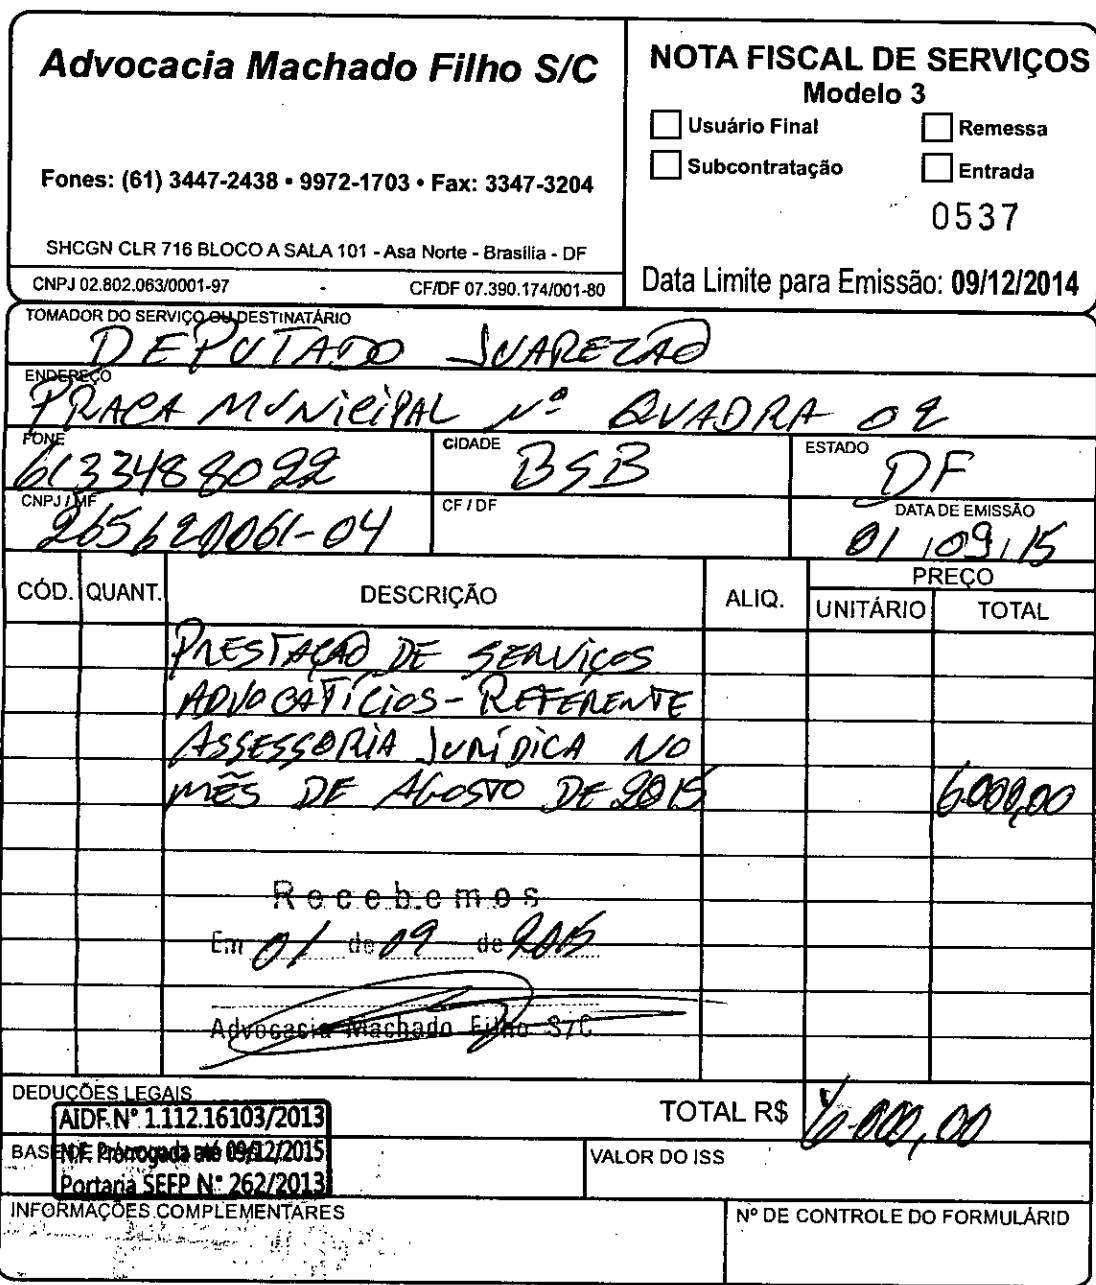 Advocacia Machado Filho S/C
Fones: (61) 3447-2438 • 9972-1703 • Fax: 3347-3204
SHCGN CLR 716 BLOCO A SALA 101 - Asa Norte - Brasília - DF
CNPJ 02.802.063/0001-97 - CF/DF 07.390.174/001-80
NOTA FISCAL DE SERVIÇOS
Modelo 3
Usuário Final Remessa
Subcontratação Entrada
0537
Data Limite para Emissão: 09/12/2014
TOMADOR DO SERVIÇO OU DESTINATÁRIO
DEPUTADO JUAREZÃO
ENDEREÇO
PRAÇA MUNICIPAL Nº QUADRA 02
FONE CIDADE ESTADO
6133488022 BSB DF
CNPJ / MF CF / DF DATA DE EMISSÃO
265620061-04 01/09/15
CÓD. QUANT. DESCRIÇÃO ALIQ. PREÇO
UNITÁRIO TOTAL
PRESTAÇÃO DE SERVIÇOS
ADVOCATÍCIOS - REFERENTE
ASSESSORIA JURÍDICA NO
MÊS DE AGOSTO DE 2015 6.000,00
Recebemos
Em 01 de 09 de 2015
Advocacia Machado Filho S/C
DEDUÇÕES LEGAIS
AIDF. Nº 1.112.16103/2013
TOTAL R$ 6.000,00
BASE DE
N.F. Prorrogada até 09/12/2015
Portaria SEFP Nº 262/2013
VALOR DO ISS
INFORMAÇÕES COMPLEMENTARES
Nº DE CONTROLE DO FORMULÁRIO